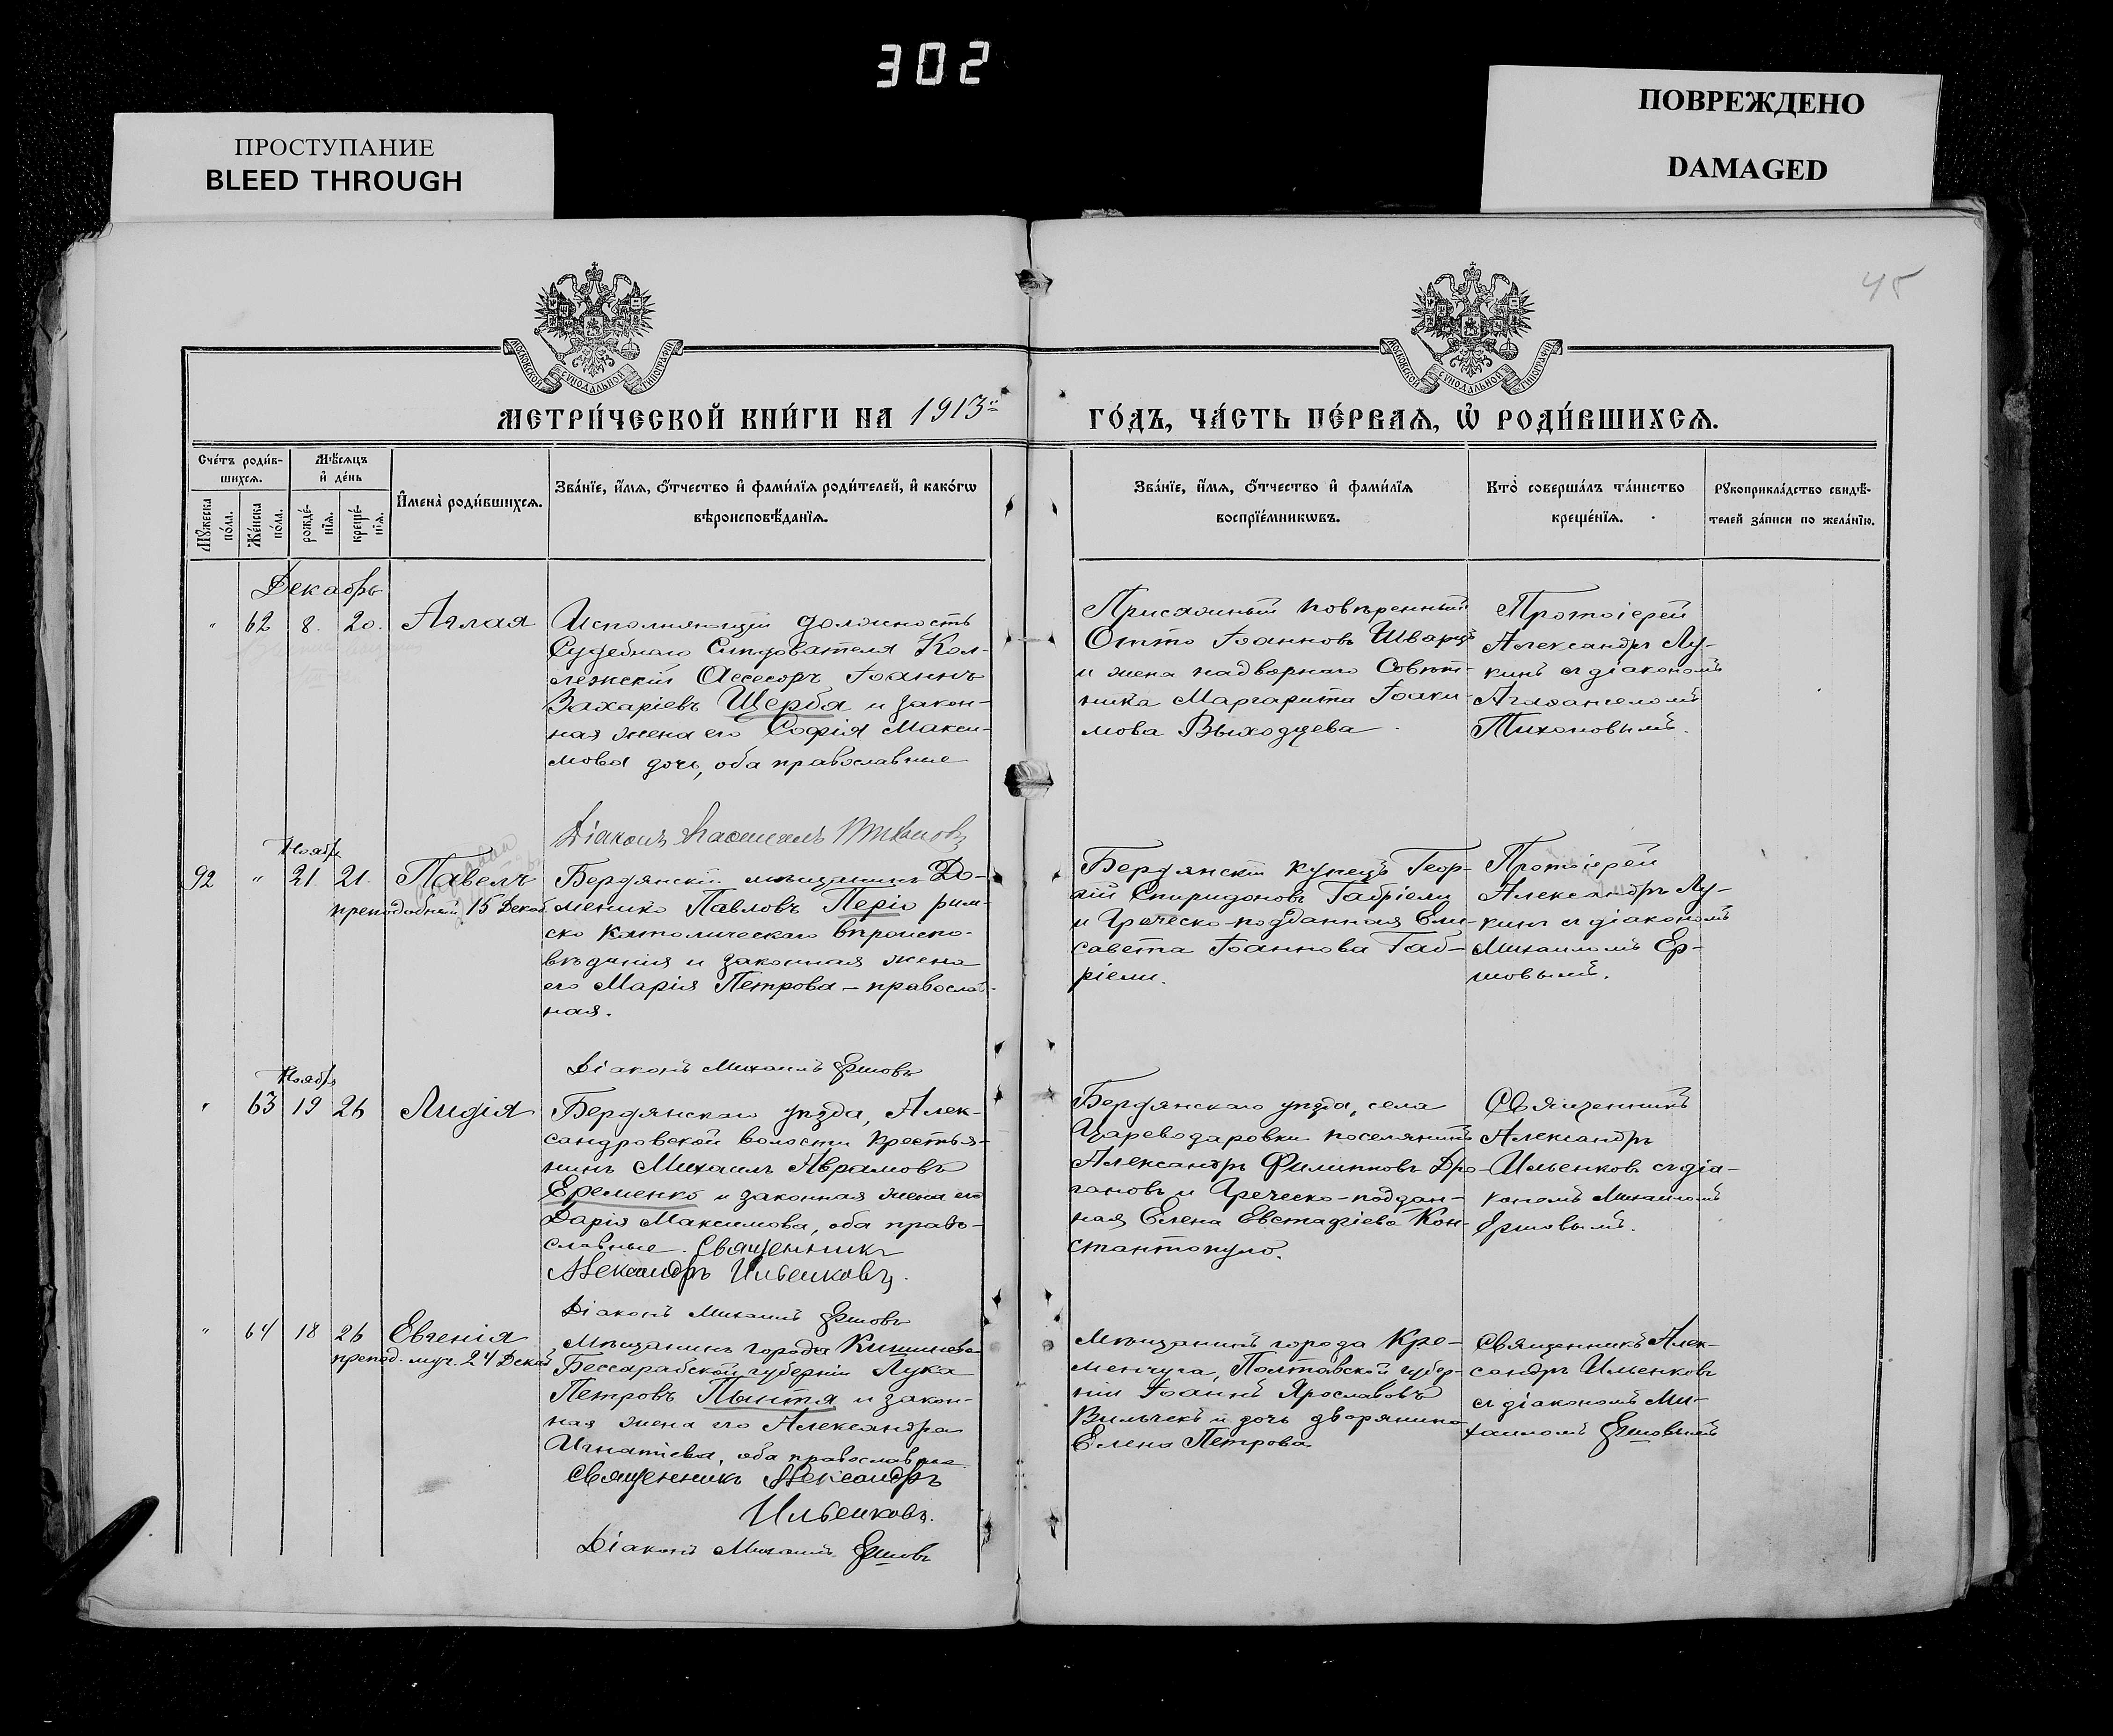 302
ПРОСТУПАНИЕ
BLEED THROUGH
ПОВРЕЖДЕНО
DAMAGED
45
МОСКОВСКОЙ СѴНОДАЛЬНОЙ ТИПОГРАФІИ
МОСКОВСКОЙ СѴНОДАЛЬНОЙ ТИПОГРАФІИ
МЕТРИ́ЧЕСКОЙ КНИ́ГИ НА 1913
ГО́ДЪ, ЧА́СТЬ ПЕ́РВАѦ, Ѡ҆ РОДИ́ВШИХСѦ.
Сче́тъ роди́в-
шихсѧ.
Мꙋ́жеска по́ла.
Же́нска по́ла.
Мѣ́сѧцъ
и҆ де́нь
рожде́-
нїѧ.
креще́-
нїѧ.
И҆мена̀ роди́вшихсѧ.
Зва́нїе, и҆́мѧ, ѻ҆́тчество и҆ фами́лїѧ роди́телей, и҆ како́гѡ
вѣроисповѣ́данїѧ.
Зва́нїе, и҆́мѧ, ѻ҆́тчество и҆ фами́лїѧ
воспрїе́мникѡвъ.
Кто̀ соверша́лъ та́инство
креще́нїѧ.
Рꙋкоприкла́дство свидѣ́-
телей за́писи по жела́нїю.
Декабрь
" 62 8. 20. Аглая
Исполняющій должность
Судебнаго Слѣдователя Кол-
лежскій Ассесоръ Іоаннъ
Захаріевъ Щерба и закон-
ная жена его Софія Макси-
мова дочь, оба православные
Діаконъ Тихоновъ
Присяжный повѣренный
Отто Іоанновъ Шварцъ
и жена надворнаго Совѣт-
ника Маргарита Іоаки-
мова Выходцева.
Протоіерей
Александръ Лу-
кинъ съ діакономъ
Тихоновымъ.
Ноябрь
92 " 21. 21. Павелъ
преподобный 15 Декаб.
Бердянскій мѣщанинъ До-
менико Павловъ Періо рим-
ско католическаго вѣроиспо-
вѣданія и законная жена
его Марія Петрова – православ-
ная.
Діаконъ Михаилъ Ершовъ
Бердянскій купецъ Геор-
гій Спиридоновъ Габріели
и Греческо-подданная Ели-
савета Іоаннова Габ-
ріели.
Протоіерей
Александръ Лу-
кинъ съ діакономъ
Михаиломъ Ер-
шовымъ.
Ноябрь
" 63 19 26 Лидія
Бердянскаго уѣзда, Алек-
сандровской волости крестья-
нинъ Михаилъ Аврамовъ
Еременко и законная жена его
Дарія Максимова, оба право-
славные. Священникъ
Александръ Ильенковъ.
Діаконъ Михаилъ Ершовъ
Бердянскаго уѣзда, села
Цареводаровки поселянинъ
Александръ Филипповъ Дра-
гановъ и Греческо-поддан-
ная Елена Евстафіева Кон-
стантопуло.
Священникъ
Александръ
Ильенковъ съ діа-
кономъ Михаиломъ
Ершовымъ.
" 64 18 26 Евгенія
препод. муч. 24 Декаб
Мѣщанинъ города Кишинева
Бессарабской губерніи Лука
Петровъ Пынтя и закон-
ная жена его Александра
Игнатіева, оба православные
Священникъ Александръ
Ильенковъ.
Діаконъ Михаилъ Ершовъ
Мѣщанинъ города Кре-
менчуга, Полтавской губер-
ніи Іоаннъ Ярославовъ
Вильчекъ и дочь дворянина
Елена Петрова
Священникъ Алек-
сандръ Ильенковъ
съ діакономъ Ми-
хаиломъ Ершовымъ